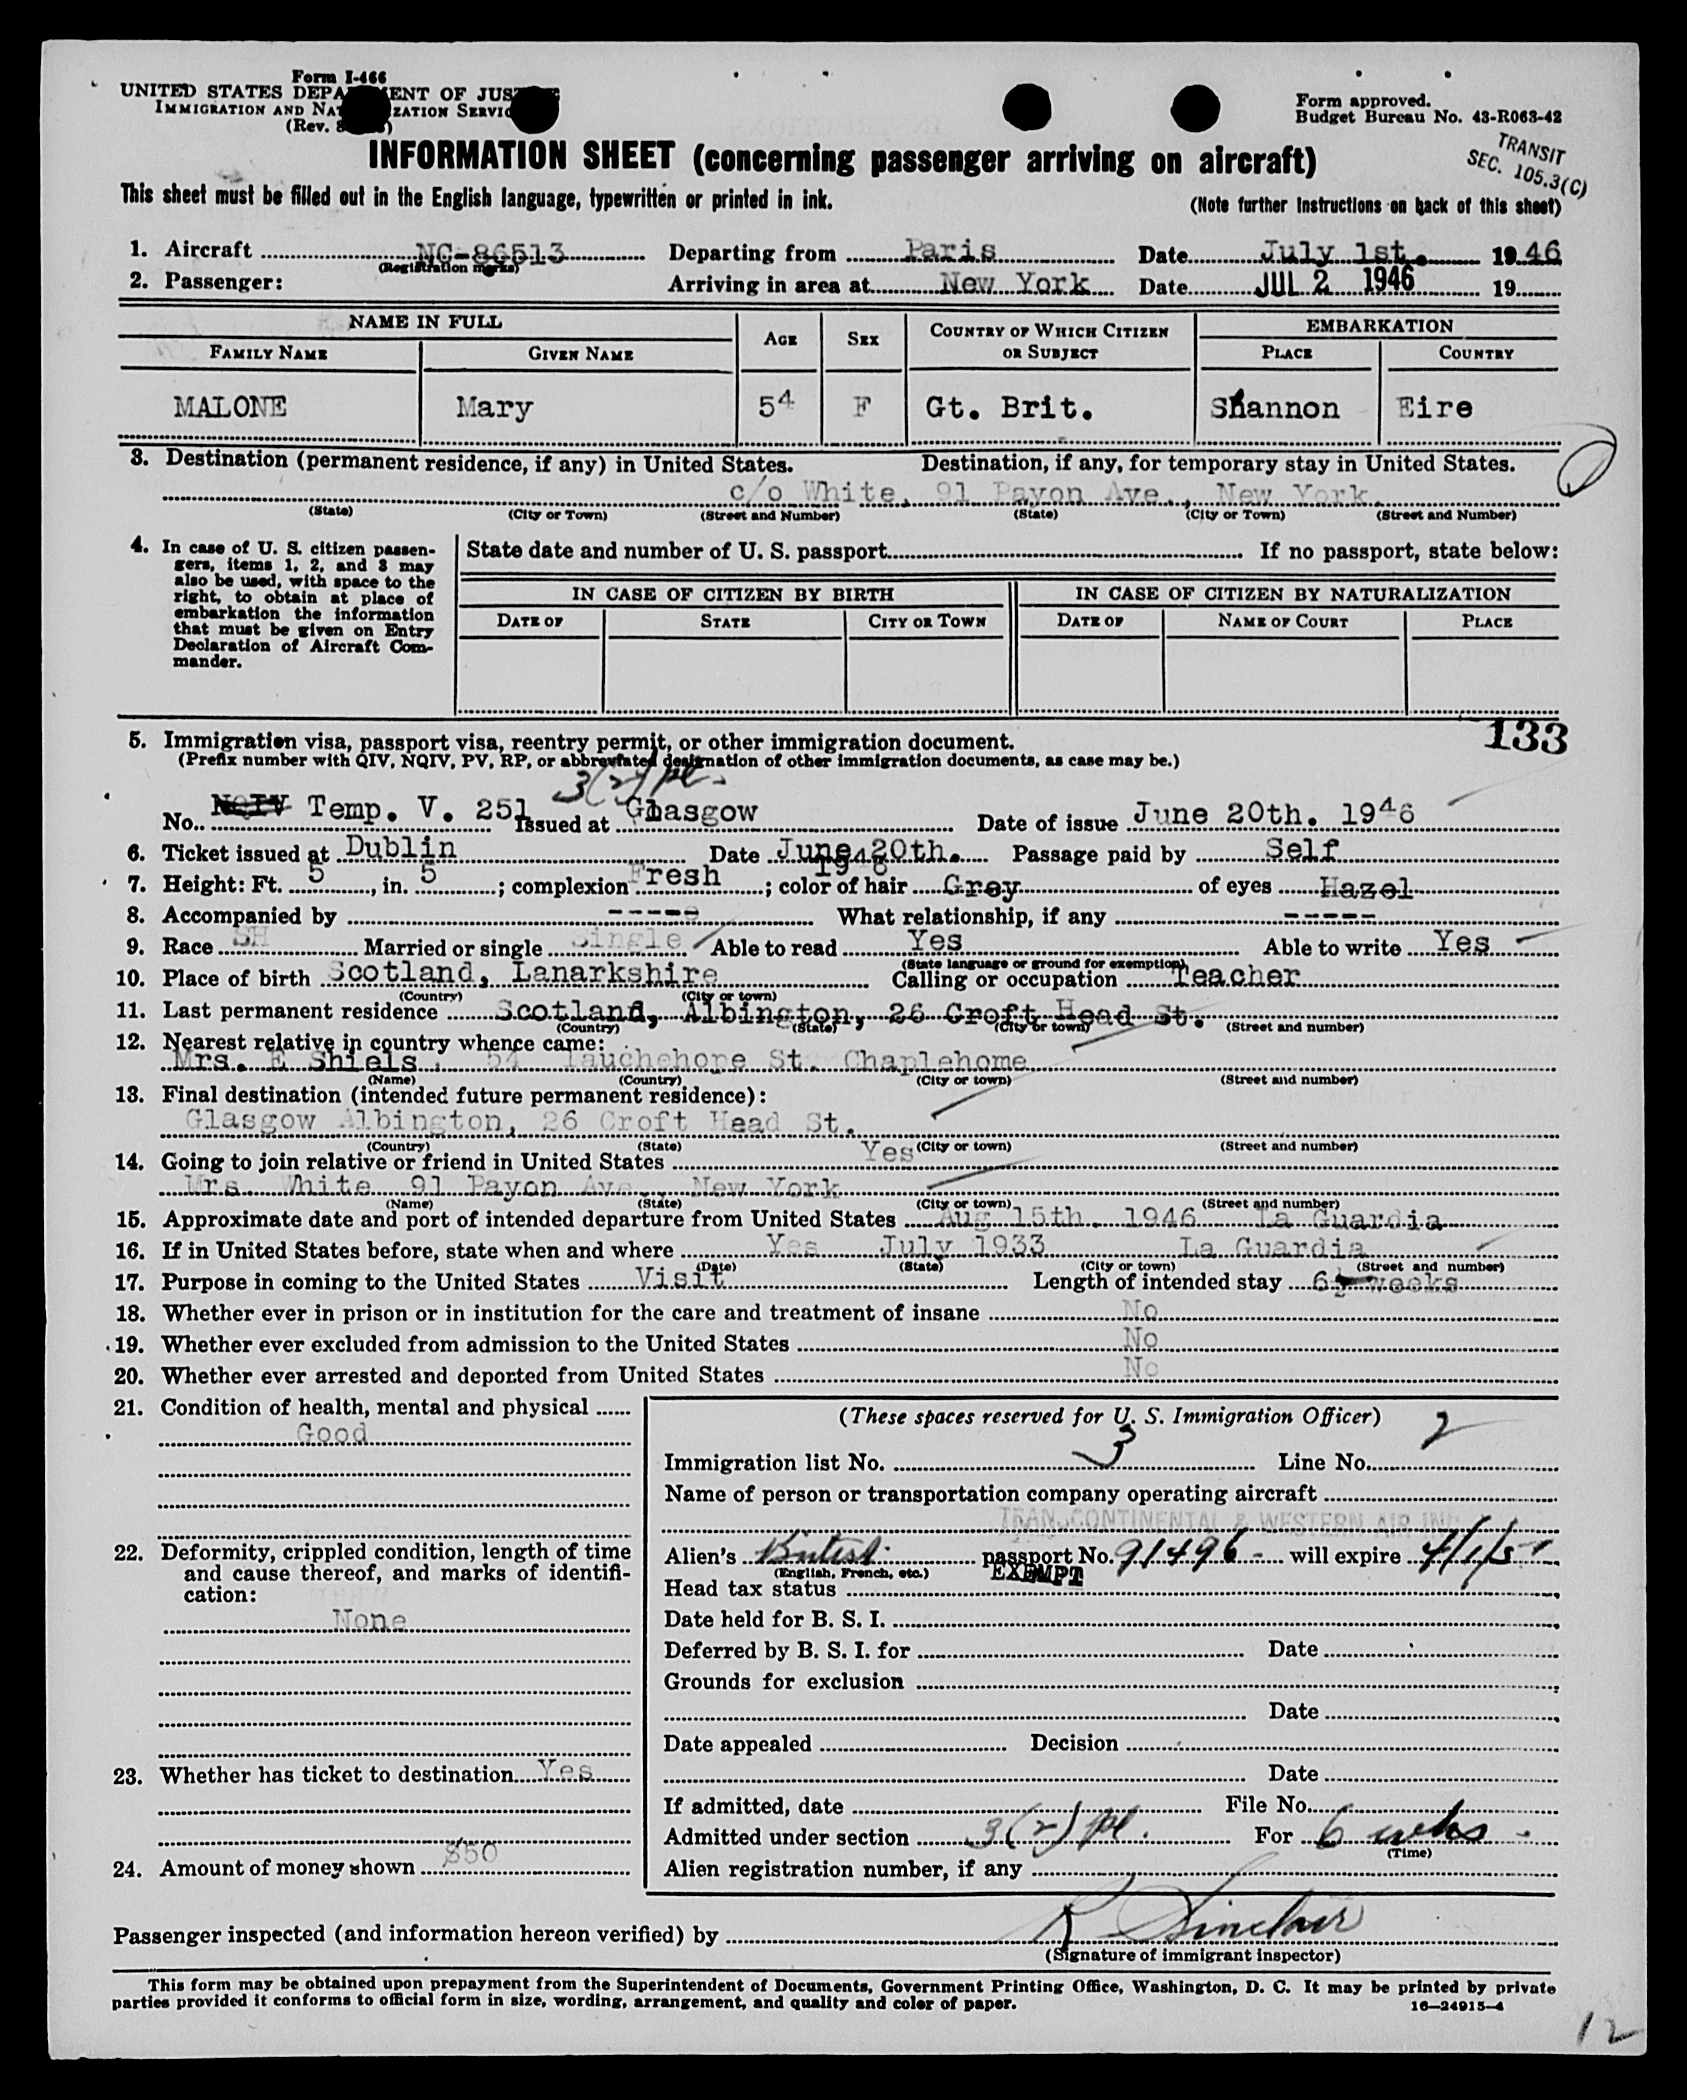 Form I-466
UNITED STATES DEPA ENT OF JUS
IMMIGRATION AND NAT IZATION SERVIC
(Rev.
Form approved.
Budget Bureau No. 43-R063-42
TRANSIT
SEC. 105.3(C)
INFORMATION SHEET (concerning passenger arriving on aircraft)
This sheet must be filled out in the English language, typewritten or printed in ink.
(Note further instructions on back of this sheet)
1. Aircraft NC-86513 Departing from Paris Date July 1st. 1946
(Registration marks)
2. Passenger: Arriving in area at New York Date JUL 2 1946 19
NAME IN FULL
FAMILY NAME GIVEN NAME AGE SEX COUNTRY OF WHICH CITIZEN OR SUBJECT EMBARKATION PLACE COUNTRY
MALONE Mary 54 F Gt. Brit. Shannon Eire
3. Destination (permanent residence, if any) in United States. Destination, if any, for temporary stay in United States.
c/o White, 91 Payon Ave., New York.
(State) (City or Town) (Street and Number) (State) (City or Town) (Street and Number)
4. In case of U. S. citizen passen-
gers, items 1, 2, and 3 may
also be used, with space to the
right, to obtain at place of
embarkation the information
that must be given on Entry
Declaration of Aircraft Com-
mander.
State date and number of U. S. passport If no passport, state below:
IN CASE OF CITIZEN BY BIRTH IN CASE OF CITIZEN BY NATURALIZATION
DATE OF STATE CITY OR TOWN DATE OF NAME OF COURT PLACE
133
5. Immigration visa, passport visa, reentry permit, or other immigration document.
(Prefix number with QIV, NQIV, PV, RP, or abbreviated designation of other immigration documents, as case may be.)
3(2) pl.
No. NQIV Temp. V. 251 Issued at Glasgow Date of issue June 20th. 1946
6. Ticket issued at Dublin Date June 20th. 1946 Passage paid by Self
7. Height: Ft. 5, in. 5; complexion Fresh; color of hair Grey of eyes Hazel
8. Accompanied by ----- What relationship, if any -----
9. Race SH Married or single Single Able to read Yes Able to write Yes
(State language or ground for exemption)
10. Place of birth Scotland, Lanarkshire Calling or occupation Teacher
(Country) (City or town)
11. Last permanent residence Scotland, Albington, 26 Croft Head St.
(Country) (State) (City or town) (Street and number)
12. Nearest relative in country whence came:
Mrs. E Shiels, 54 Tauchehope St. Chaplehome
(Name) (Country) (City or town) (Street and number)
13. Final destination (intended future permanent residence):
Glasgow Albington, 26 Croft Head St.
(Country) (State) (City or town) (Street and number)
14. Going to join relative or friend in United States Yes
Mrs. White 91 Payon Ave New York
(Name) (State) (City or town) (Street and number)
15. Approximate date and port of intended departure from United States Aug 15th. 1946 La Guardia
16. If in United States before, state when and where Yes July 1933 La Guardia
(Date) (State) (City or town) (Street and number)
17. Purpose in coming to the United States Visit Length of intended stay 6½ weeks
18. Whether ever in prison or in institution for the care and treatment of insane No
19. Whether ever excluded from admission to the United States No
20. Whether ever arrested and deported from United States No
21. Condition of health, mental and physical
Good
22. Deformity, crippled condition, length of time
and cause thereof, and marks of identifi-
cation:
None
23. Whether has ticket to destination Yes
24. Amount of money shown $50
(These spaces reserved for U. S. Immigration Officer)
Immigration list No. 3 Line No. 2
Name of person or transportation company operating aircraft
TRANSCONTINENTAL & WESTERN AIR INC
Alien's British passport No. 91496 - will expire 4/1/51
(English, French, etc.)
Head tax status EXEMPT
Date held for B. S. I.
Deferred by B. S. I. for Date
Grounds for exclusion
Date
Date appealed Decision
Date
If admitted, date File No.
Admitted under section 3(2) pl. For 6 wks
(Time)
Alien registration number, if any
Passenger inspected (and information hereon verified) by R Sinclair
(Signature of immigrant inspector)
This form may be obtained upon prepayment from the Superintendent of Documents, Government Printing Office, Washington, D. C. It may be printed by private
parties provided it conforms to official form in size, wording, arrangement, and quality and color of paper.
16—24915-4
12